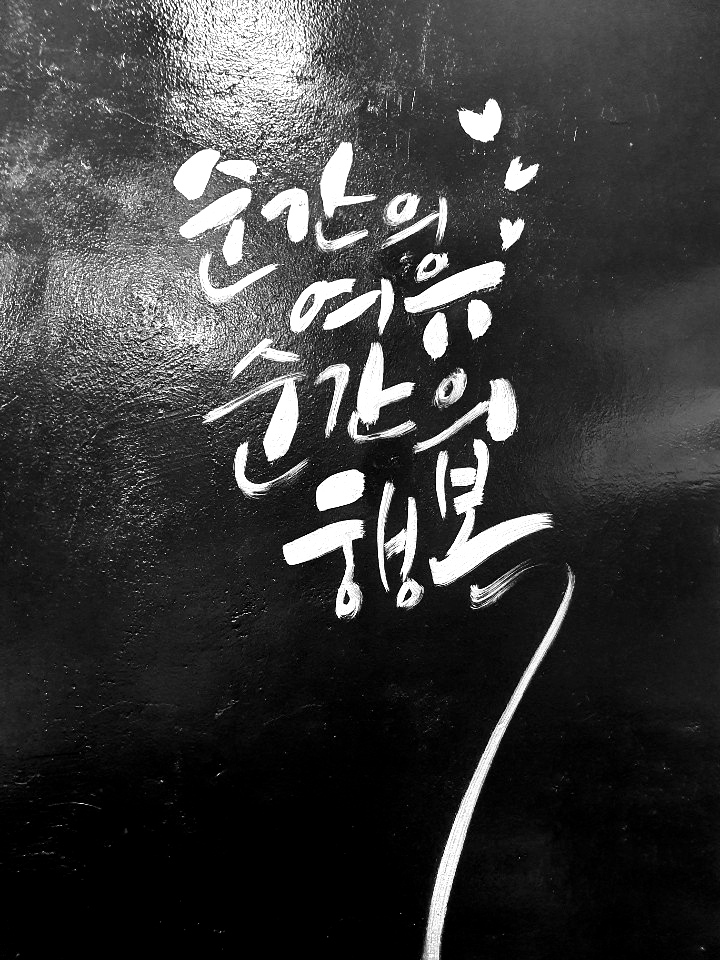 순간의
여유
순간의
행복